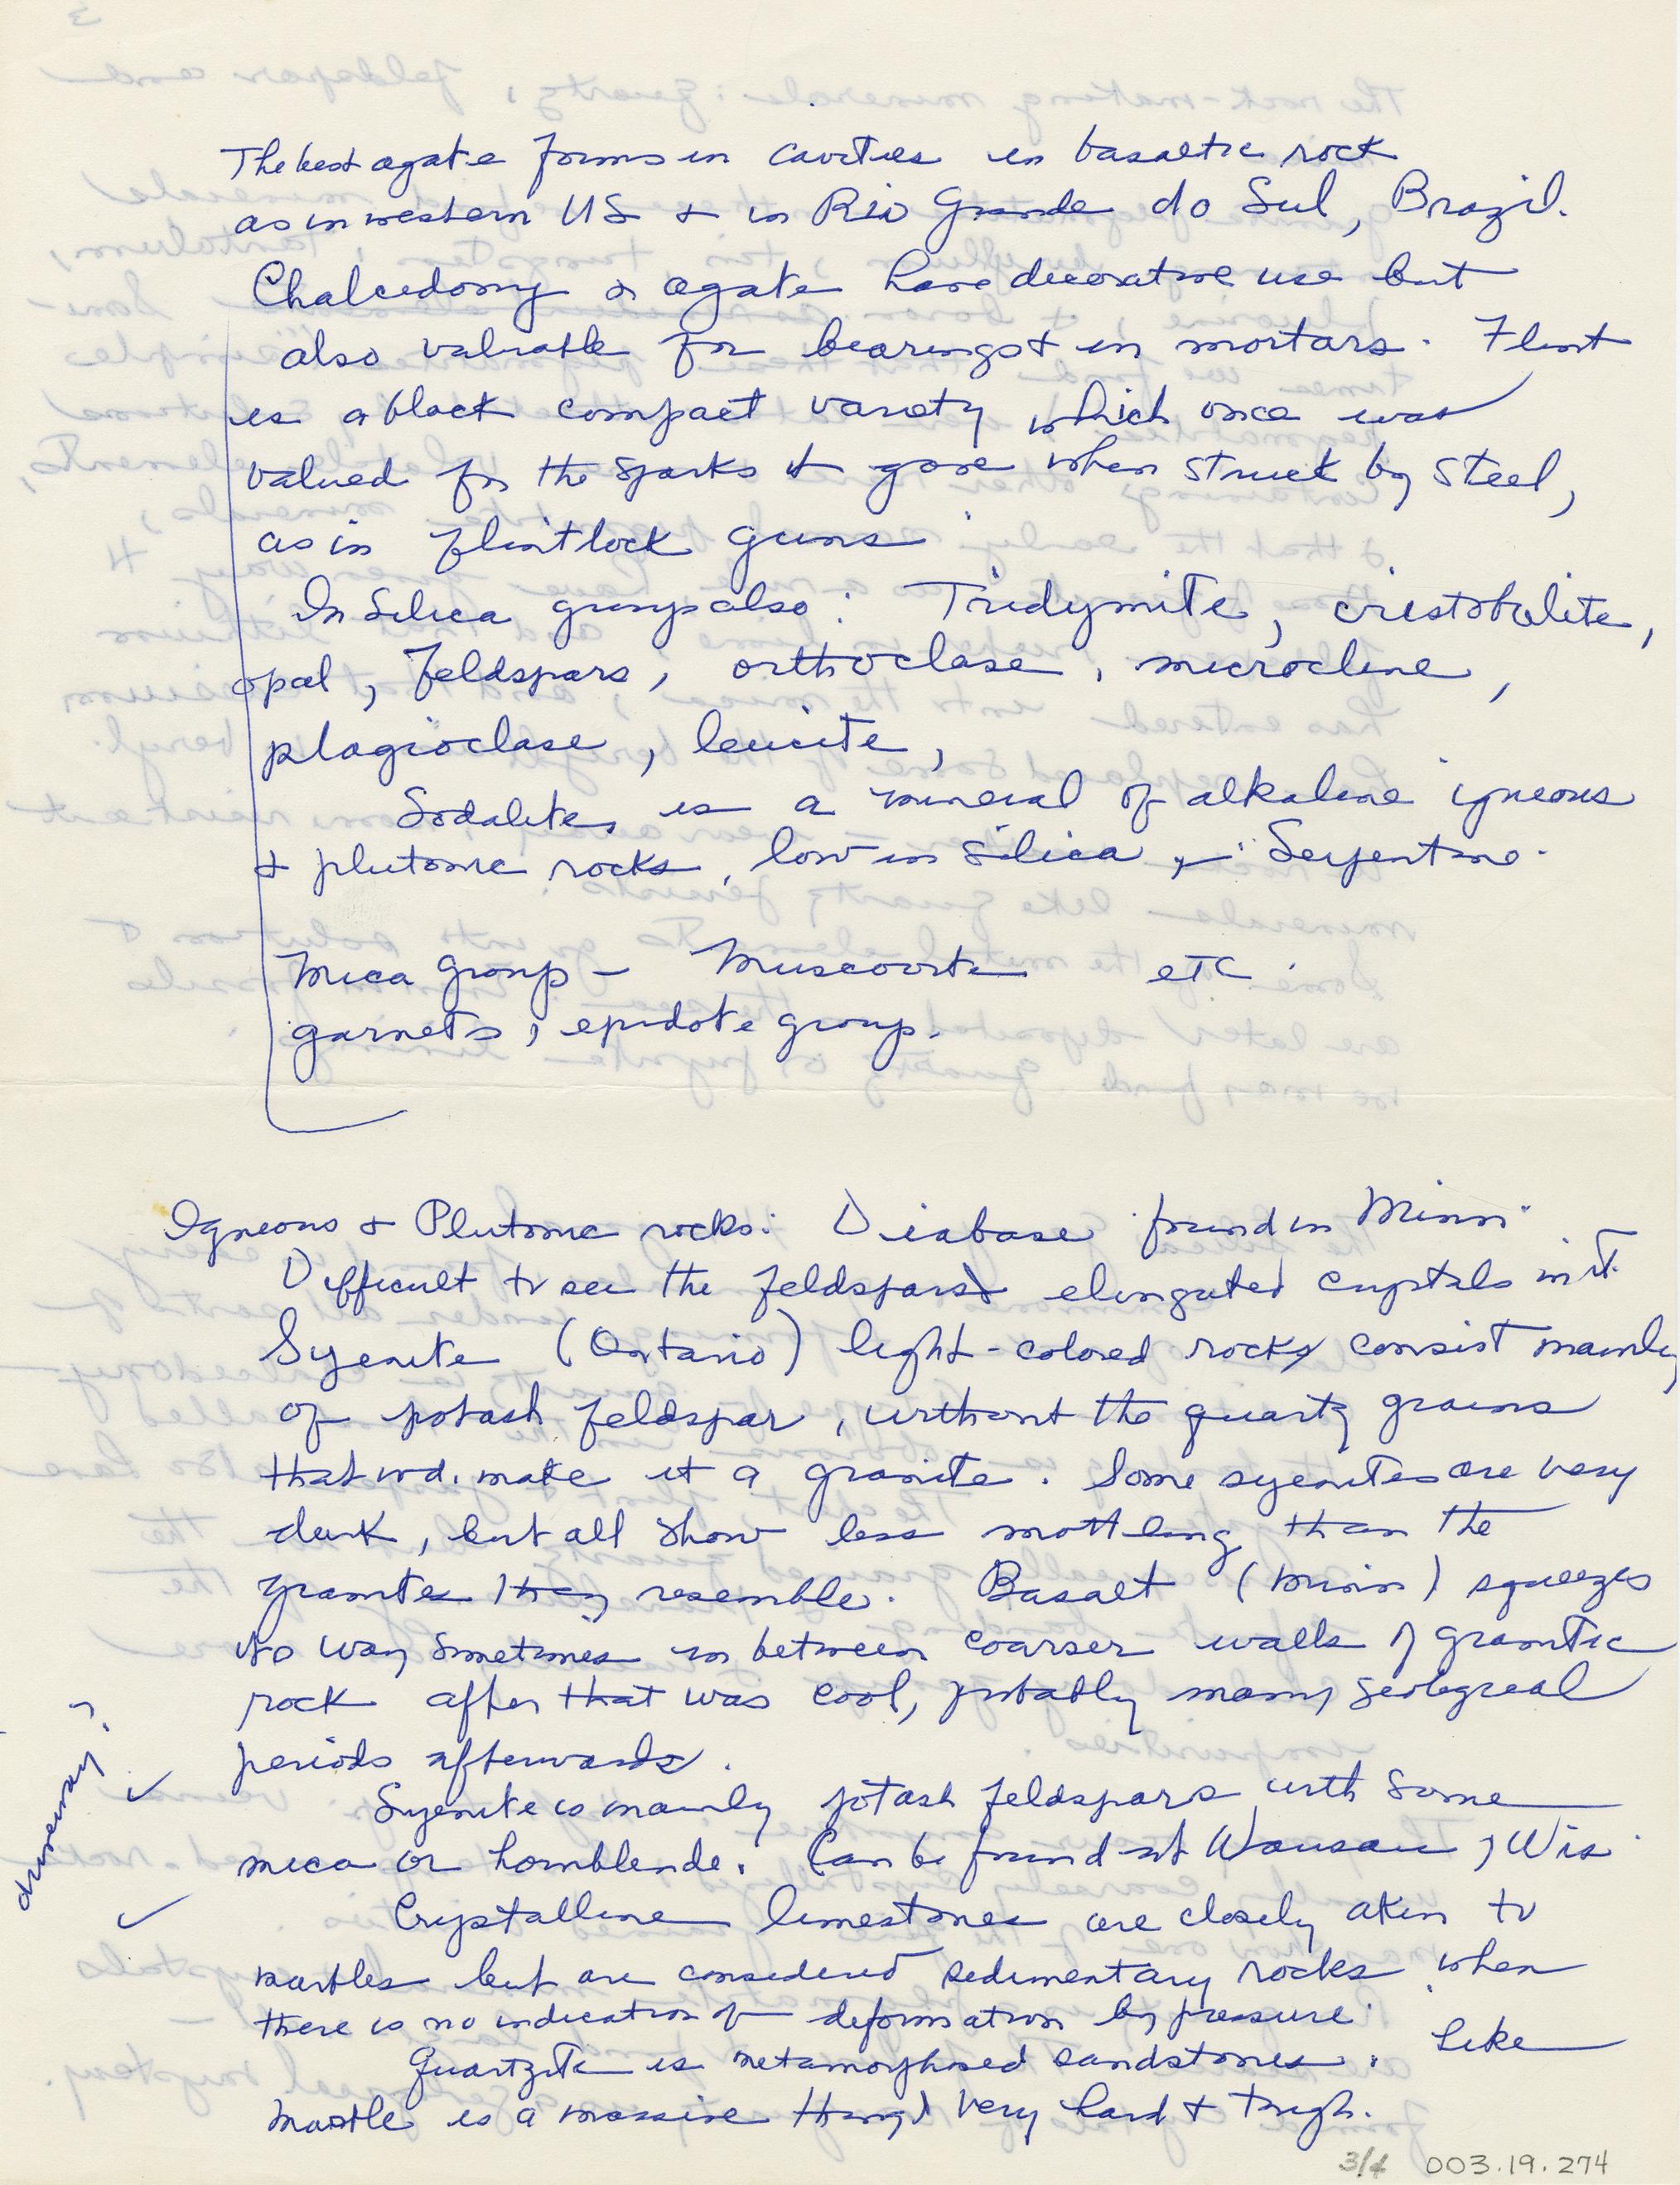 The best agate forms in cavities in basaltic rock
as in western US & in Rio Grande do Sul, Brazil.
Chalcedony & agate have decorative use but
also valuable for bearings & in mortars. Flint
is a black compact variety which once was
valued for the sparks it gave when struck by steel,
as in flintlock guns
In Silica group also: Tridymite, cristobalite,
opal, feldspars, orthoclase, microcline,
plagioclase, leucite,
Sodalite, is a mineral of alkaline igneous
& plutonic rocks, low in silica, Serpentine.
Mica group – Muscovite etc.
garnets, epidote group.
Igneous & Plutonic rocks: Diabase found in Minn.
Difficult to see the feldspars elongated crystals in it.
Syenite (Ontario) light-colored rocks consist mainly
of potash feldspar, without the quartz grains
that wd. make it a granite. Some syenites are very
dark, but all show less mottling than the
granites they resemble. Basalt (Minn) squeezes
its way sometimes in between coarser walls of granitic
rock after that was cool, probably many geological
periods afterwards.
driveway?
✓ Syenite is mainly potash feldspars with some
mica or hornblende. Can be found at Wausau, Wis.
✓ Crystalline limestones are closely akin to
marbles but are considered sedimentary rocks when
there is no indication of deformation by pressure.
Quartzite is metamorphosed sandstones. Like
marble is a massive thing! very hard & tough.
3/4 003.19.274